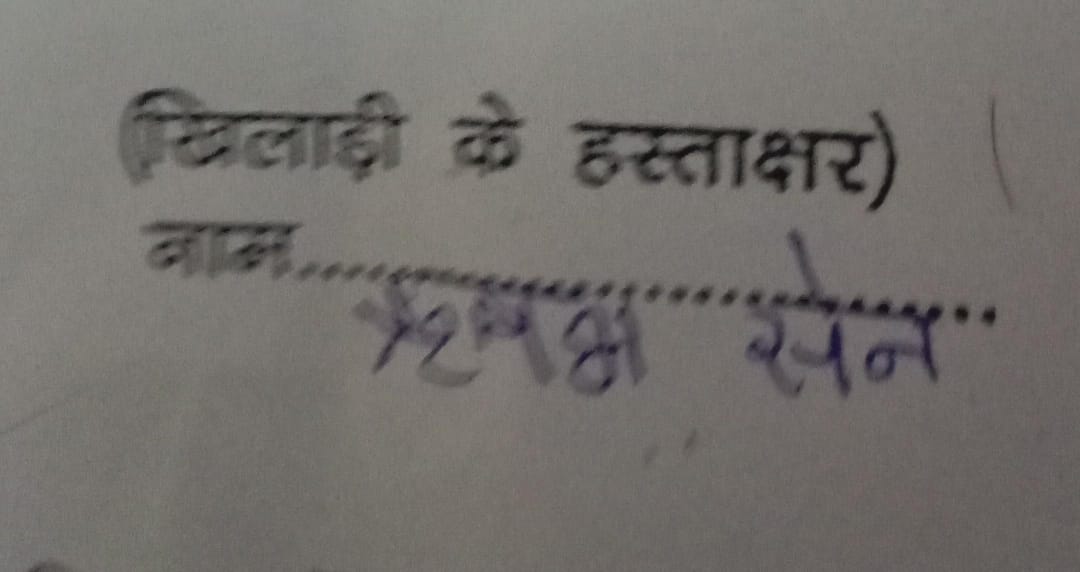 (खिलाड़ी के हस्ताक्षर)
नाम..............................................
ऋषभ सेन